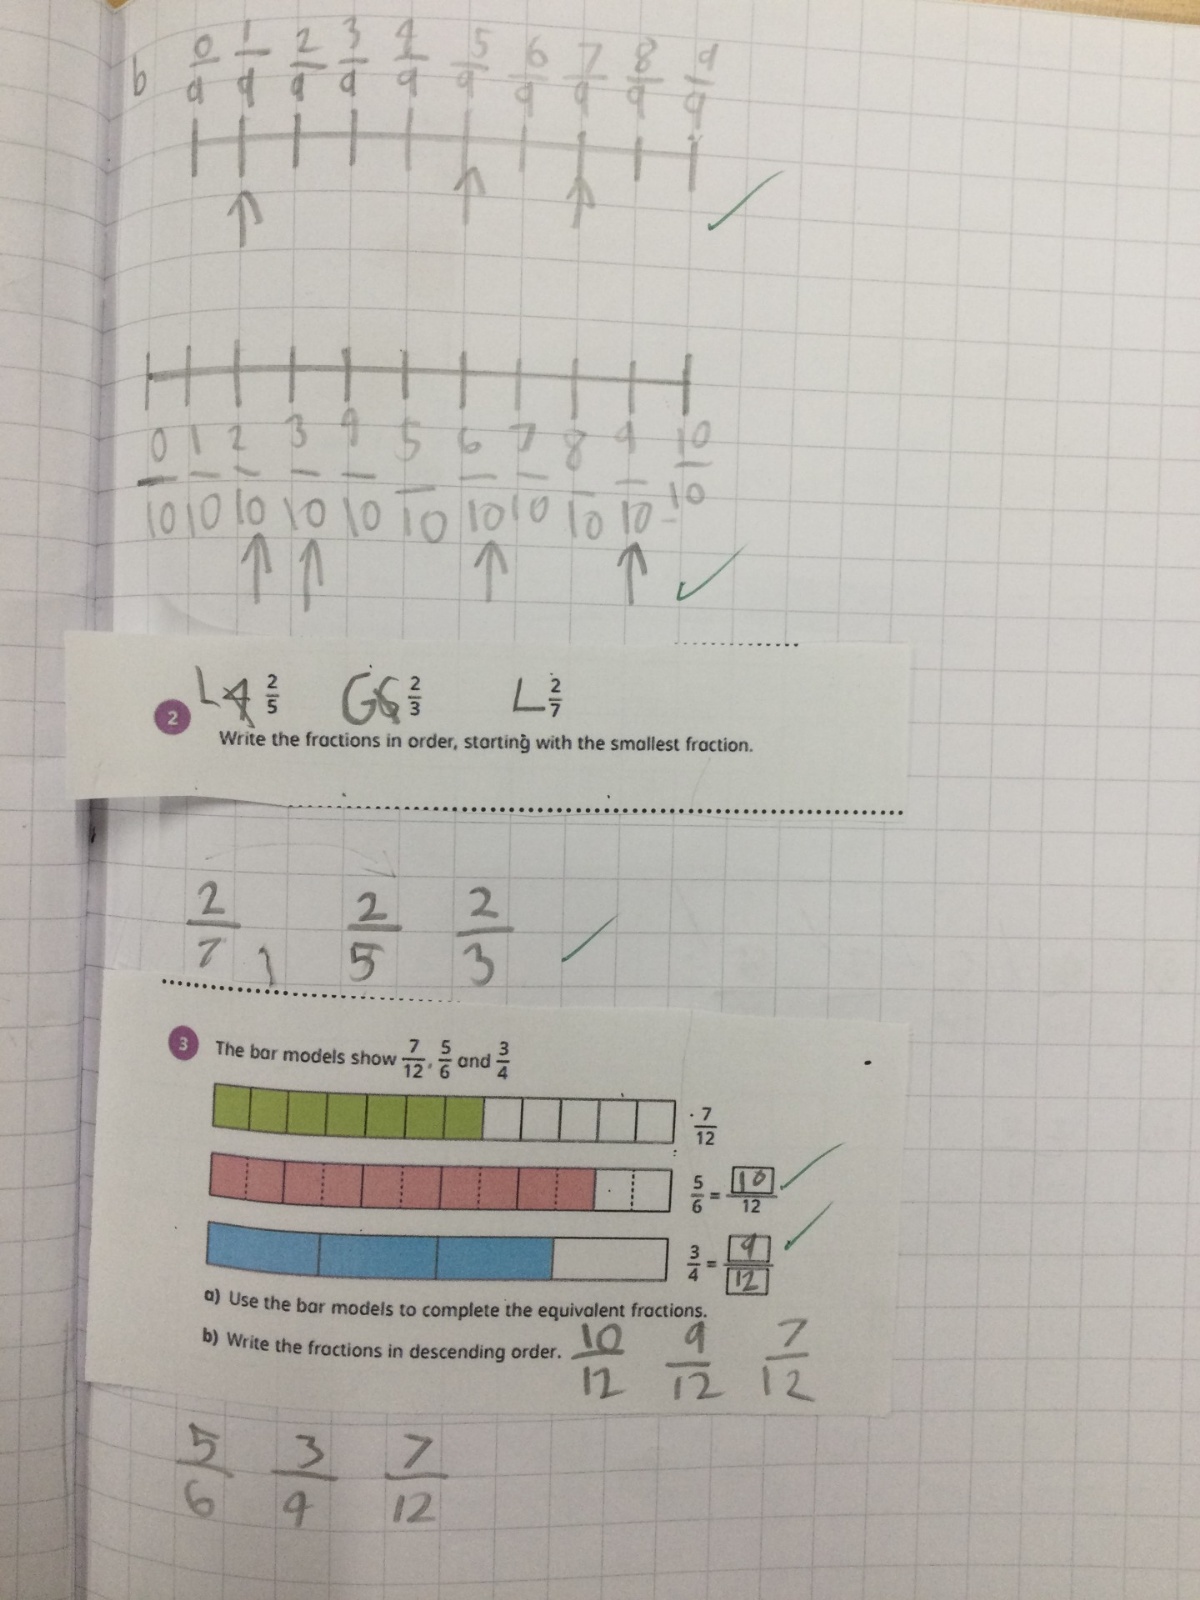 b 0/9 1/9 2/9 3/9 4/9 5/9 6/9 7/9 8/9 9/9
0/10 1/10 2/10 3/10 4/10 5/10 6/10 7/10 8/10 9/10 10/10
2 L 2/5 G 2/3 L 2/7
Write the fractions in order, starting with the smallest fraction.
2/7 , 2/5 2/3
3 The bar models show 7/12, 5/6 and 3/4
7/12
5/6 = 10/12
3/4 = 9/12
a) Use the bar models to complete the equivalent fractions.
b) Write the fractions in descending order. 10/12 9/12 7/12
5/6 3/4 7/12